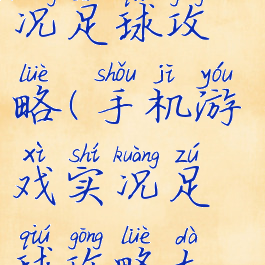 况足球攻
lüè shǒu jī yóu
略(手机游
xì shí kuàng zú
戏实况足
qiú gōng lüè dà
球攻略大